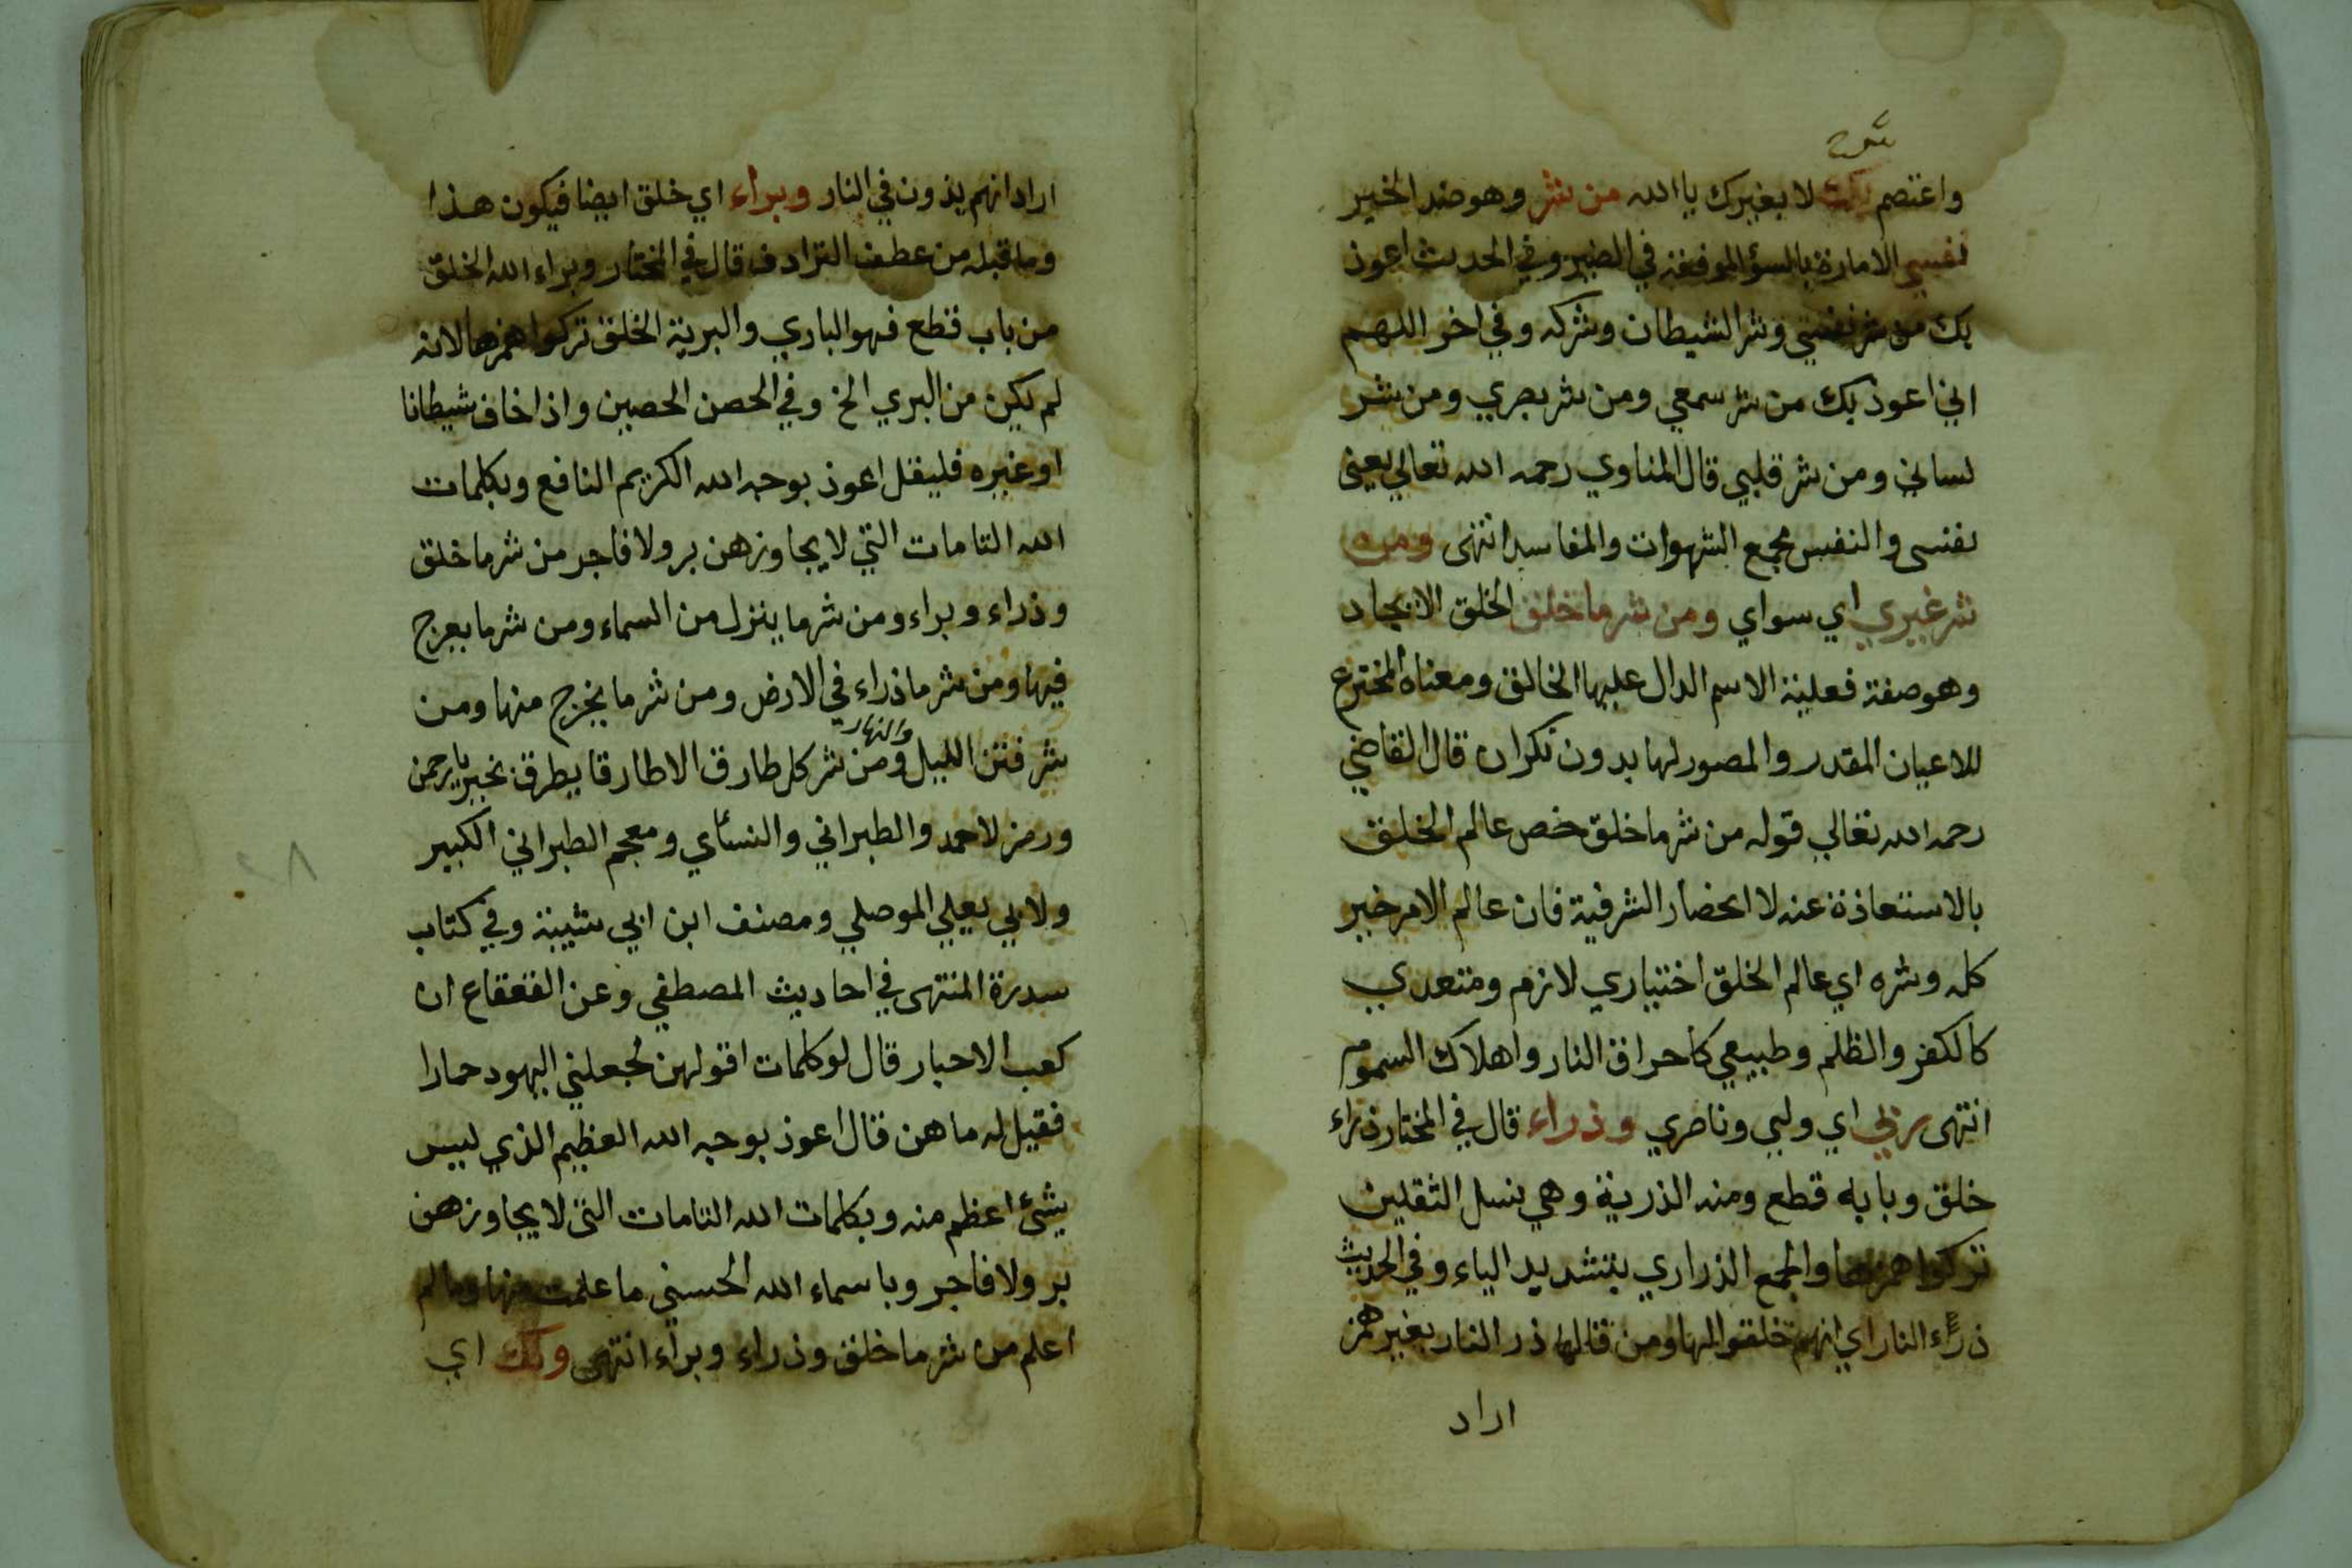 واعتصم بك لا بغيرك يا الله من شر وهو ضد الخير
نفسي الامارة بالسؤ الموقعة في الضير وفي الحديث اعوذ
بك من شر نفسي وشر الشيطان وشركه وفي اخر اللهم
اني اعوذ بك من شر سمعي ومن شر بصري ومن شر
لساني ومن شر قلبي قال المناوي رحمه الله تعالي يعني
نفسي والنفس مجمع الشهوات والمفاسد انتهى ومن
شر غيري اي سواي ومن شر ما خلق الخلق الايجاد
وهو صفة فعلية الاسم الدال عليها الخالق ومعناه المخترع
للاعيان المقدر والمصور لها بدون نكران قال القاضي
رحمه الله تعالي قوله من شر ما خلق خص عالم الخلق
بالاستعاذة عنه لا انحضار الشر فيه فان عالم الامر خير
كله وشره اي عالم الخلق اختياري لازم ومتعدي
كالكفر والظلم وطبيعي كاحراق النار واهلاك السموم
انتهى ربي اي ولبي وناصري وذراء قال في المختار ذراء
خلق وبابه قطع ومنه الذرية وهي نسل الثقلين
تركوا همزها والجمع الذراري بتشديد الياء وفي الحديث
ذرء النار اي انهم خلقوا لها ومن قالها ذر النار بغير همز
اراد
اراد انهم يذرون في النار وبراء اي خلق ايضا فيكون هذا
وما قبله من عطف الترادف قال في المختار وبراء الله الخلق
من باب قطع فهو الباري والبرية الخلق تركوا همزها لانه
لم يكن من البري الخ وفي الحصن الحصين واذا خاف شيطانا
او غيره فليقل اعوذ بوجه الله الكريم النافع وبكلمات
الله التامات التي لا يجاوزهن بر ولا فاجر من شر ما خلق
وذراء وبراء ومن شر ما ينزل من السماء ومن شر ما يعرج
فيها ومن شر ما ذراء في الارض ومن شر ما يخرج منها ومن
شر فتن الليل والنهار ومن شر كل طارق الا طارقا يطرق بخير يا رحمن
ورمز لاحمد والطبراني والنسأي ومعجم الطبراني الكبير
ولابي يعلي الموصلي ومصنف ابن ابي شيبة وفي كتاب
سدرة المنتهى في احاديث المصطفي وعن القعقاع ان
كعب الاحبار قال لو كلمات اقولهن لجعلني اليهود حمارا
فقيل له ما هن قال اعوذ بوجه الله العظيم الذي ليس
بشئ اعظم منه وبكلمات الله التامات التي لا يجاوزهن
بر ولا فاجر وباسماء الله الحسني ما علمت منها وما لم
اعلم من شر ما خلق وذراء وبراء انتهى وبك اي